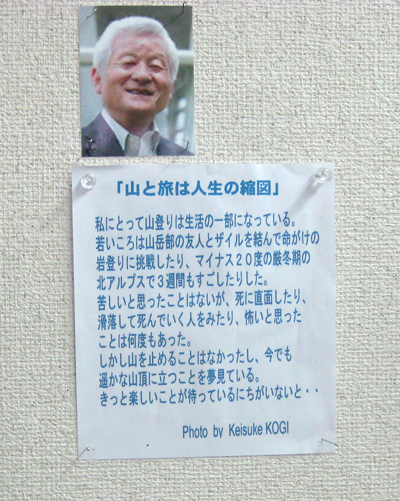 「山と旅は人生の縮図」
私にとって山登りは生活の一部になっている。
若いころは山岳部の友人とザイルを結んで命がけの
岩登りに挑戦したり、マイナス20度の厳冬期の
北アルプスで3週間もすごしたりした。
苦しいと思ったことはないが、死に直面したり、
滑落して死んでいく人をみたり、怖いと思った
ことは何度もあった。
しかし山を止めることはなかったし、今でも
遥かな山頂に立つことを夢見ている。
きっと楽しいことが待っているにちがいないと・・
Photo by Keisuke KOGI